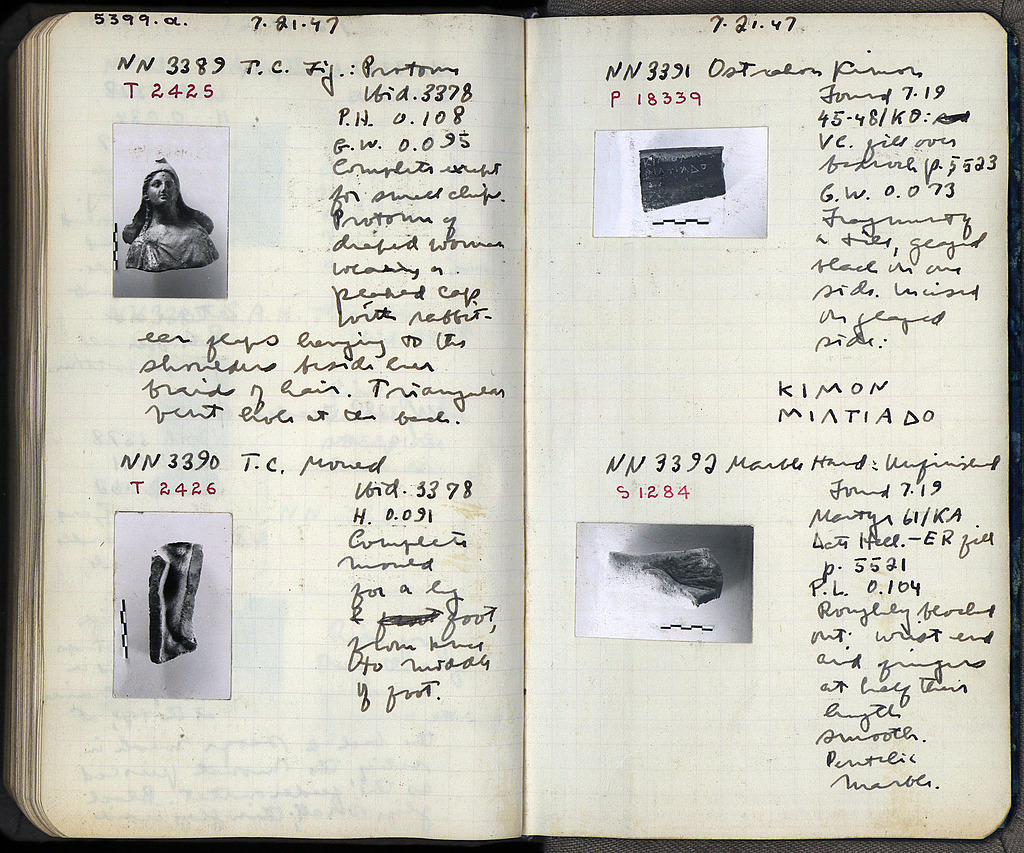 5399.a.
7.21.47
NN 3389 T.C. Fig.: Protome
T 2425
Ibid. 3378
P.H. 0.108
G.W. 0.095
Complete except
for small chips.
Protome of
draped woman
wearing a
peaked cap
with rabbit-
ear flaps hanging to the
shoulders beside her
braids of hair. Triangular
vent hole at the back.
NN 3390 T.C. Mould
T 2426
Ibid. 3378
H. 0.091
Complete
mould
for a leg
& foot,
from knee
to middle
of foot.
7.21.47
NN 3391 Ostrakon Kimon
P 18339
Found 7.19
45-48/ΚΘ:
VC. fill over
bedrock p. 5523
G.W. 0.073
Fragment of
a tile, glazed
black on one
side. Incised
on glazed
side:
ΚΙΜΟΝ
ΜΙΛΤΙΑΔΟ
NN 3392 Marble Hand: Unfinished
S 1284
Found 7.19
Martyr 61/ΚΑ
Late Hell.-ER fill
p. 5521
P.L. 0.104
Roughly blocked
out: wrist end
and fingers
at half their
length
smooth.
Pentelic
marble.